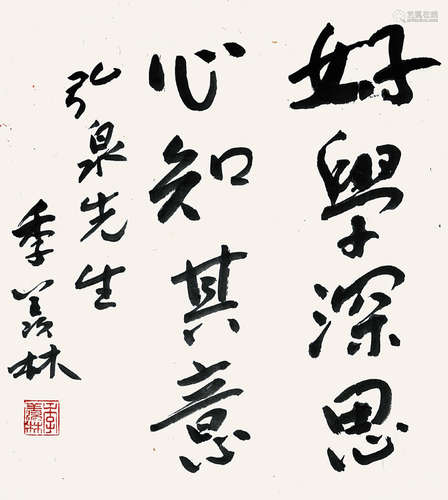 好學深思
心知其意
弘泉先生
季羡林
季羡林